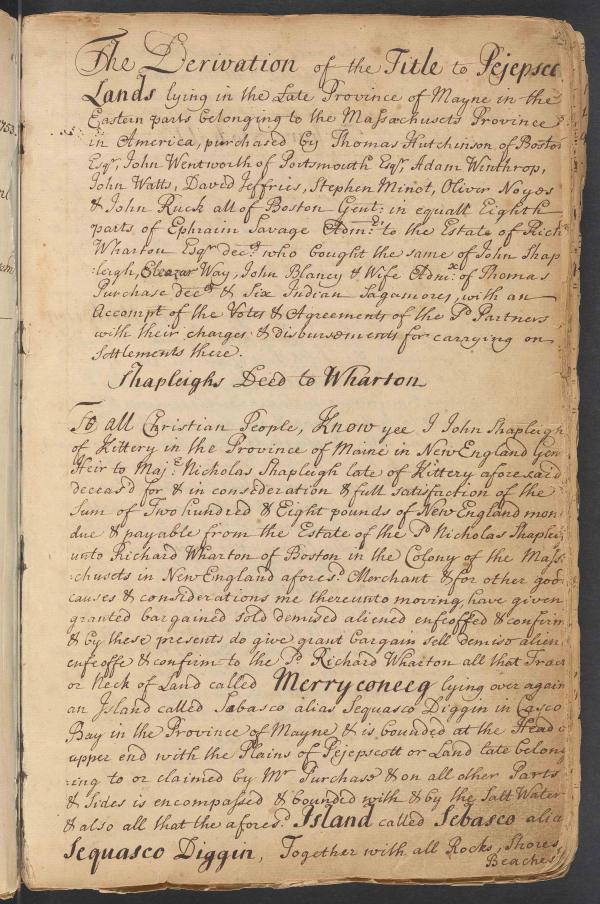 The Derivation of the Title to Pejepsco
Lands lying in the Late Province of Mayne in the
Eastern parts belonging to the Massachusets Province
in America, purchased by Thomas Hutchinson of Boston
Esqr, John Wentworth of Portsmouth Esqr, Adam Winthrop,
John Watts, David Jeffries, Stephen Minot, Oliver Noyes
& John Ruck all of Boston Gent: in equall Eighth
parts of Ephraim Savage Admr: to the Estate of Rich
Wharton Esqr decd who bought the same of John Shap
:leigh, Eleazar Way, John Blaney & Wife Admx: of Thomas
Purchase decd & Six Indian Sagamores, with an
Accompt of the Votes & Agreements of the Sd Partners
with their charges & disbursements for carrying on
Settlements there.
Shapleighs Deed to Wharton
To all Christian People, Know yee I John Shapleigh
of Kittery in the Province of Maine in New England Gen
Heir to Majr: Nicholas Shapleigh late of Kittery aforesaid
deceas'd for & in consideration & full satisfaction of the
Sum of Two hundred & Eight pounds of New England mon
due & payable from the Estate of the Sd Nicholas Shaplei
unto Richard Wharton of Boston in the Colony of the Mass
:chusets in New England aforesd: Merchant & for other good
causes & considerations me thereunto moving, have given
granted bargained sold demised aliened enfeoffed & confirm
& by these presents do give grant bargain sell demise alien
enfeoffe & confirm to the Sd Richard Wharton all that Tract
or Neck of Land called Merryconeeg lying over again
an Island called Sebasco alias Sequasco Diggin in Casco
Bay in the Province of Mayne & is bounded at the Head o
upper end with the Plains of Pejepscott or Land late belong
:ing to or claimed by Mr Purchase & on all other Parts
& Sides is encompassed & bounded with & by the Salt Water
& also all that the aforesd: Island called Sebasco alia
Sequasco Diggin, Together with all Rocks, Shores,
Beaches